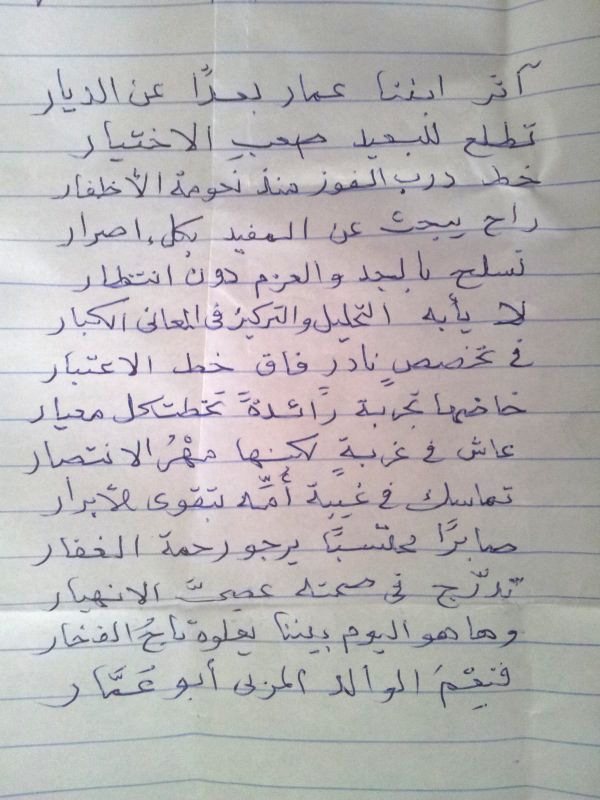 آثر ابننا عمار بعدًا عن الديار
تطلع للبعيد صعبِ الاختيار
خط درب الفوز منذ نعومة الأظفار
راح يبحث عن المفيد بكل اصرار
تسلح بالجد والعزم دون انتظار
لا يأبه التحليل والتركيز في المعاني الكبار
في تخصصٍ نادرٍ فاق خط الاعتبار
خاضها تجربة رائدةً تخطت كل معيار
عاش في غربةٍ لكنها مهْرُ الانتصار
تماسك في غيبة أُمِّه بتقوى الأبرار
صابرًا محتسبًا يرجو رحمة الغفار
تدرَّج في صمته عصيَّ الانهيار
وها هو اليوم بيننا يعلوه تاجُ الفخار
فنِعْمَ الوالد المربي أبو عَمَّار